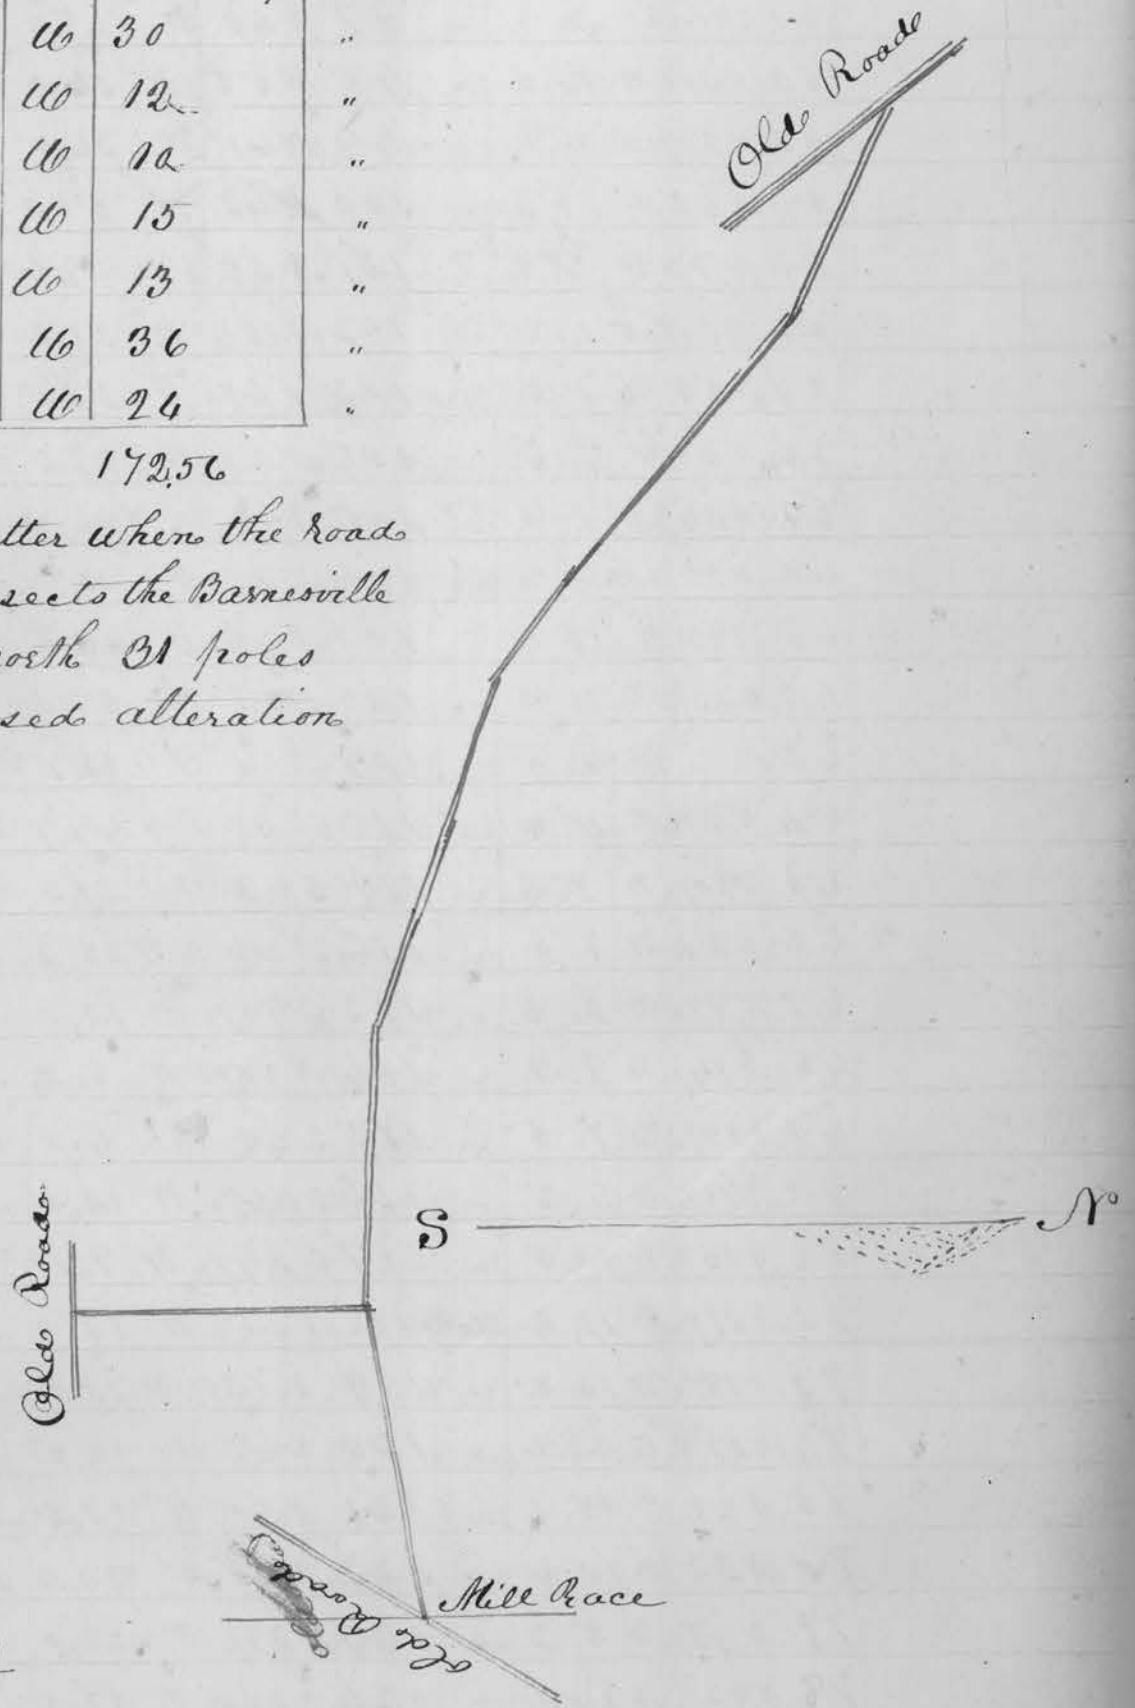 W 30 "
W 12 "
W 10 "
W 15 "
W 13 "
W 36 "
W 24 "
172,56
tter when the road
sects the Barnesville
orth 31 poles
sed alteration
Old Road
S N
Old Road
Old Road
Mill Race